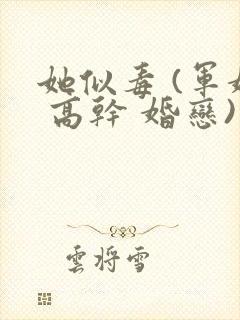 她似毒(軍
高幹 婚戀)
雲將雪